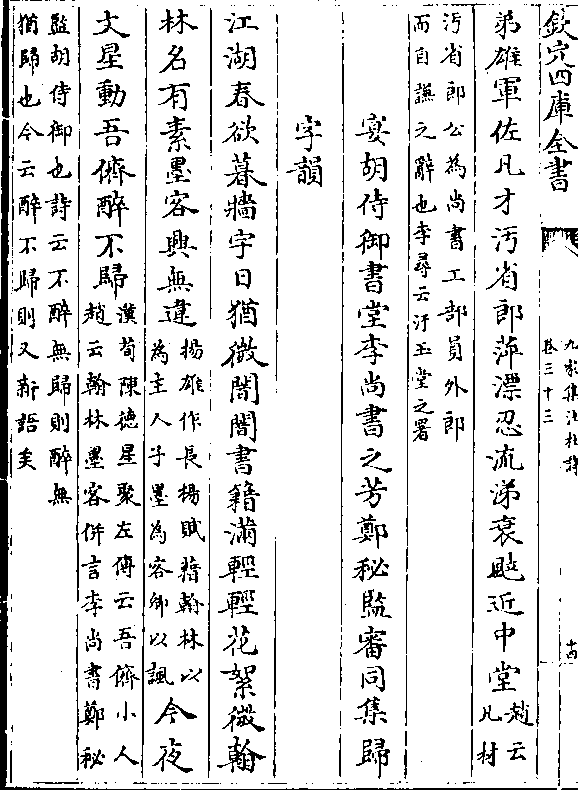 欽定四庫全書
九家集注杜詩
卷三十三
十四
弟雄軍佐凡才汚省郎萍漂忍流涕衰颯近中堂
趙云
凡材
汚省郎公為尚書工部員外郎
而自謙之辭也李尋云汙玉堂之署
宴胡侍御書堂李尚書之芳鄭秘監審同集歸
字韻
江湖春欲暮牆宇日猶微闇闇書籍滿輕輕花絮微翰
林名有素墨客興無違
揚雄作長楊賦藉翰林以
為主人子墨為客卿以諷
今夜
文星動吾儕醉不歸
漢荀陳德星聚左傳云吾儕小人
趙云翰林墨客併言李尚書鄭秘
監胡侍御也詩云不醉無歸則醉無
猶歸也今云醉不歸則又新語矣